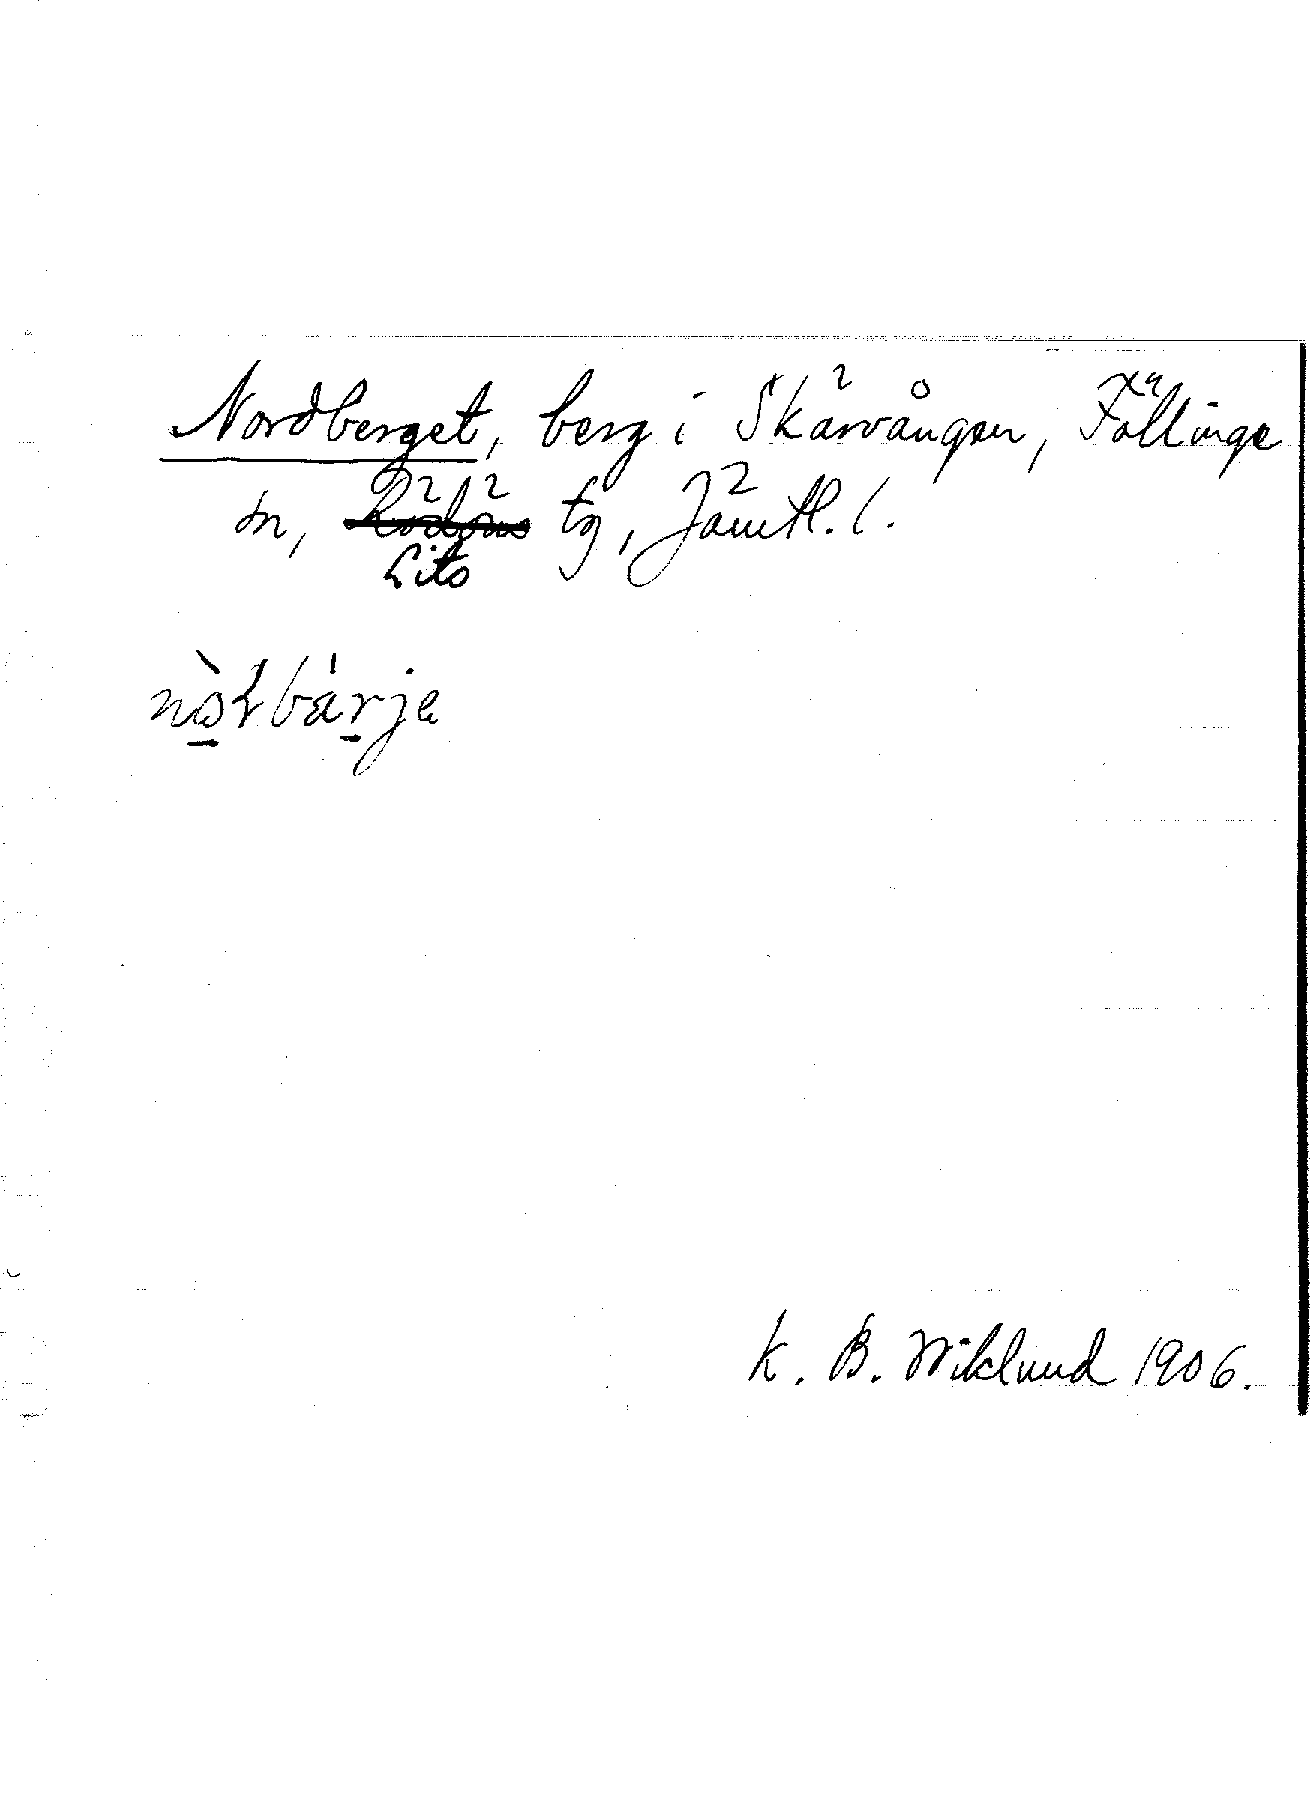 Nordberget, berg i Skärvången, Föllinge
sn, Rödöns tg, Jämtl. l.
Lits
nò̱ɫbá̱rje
K. B. Wiklund 1906.